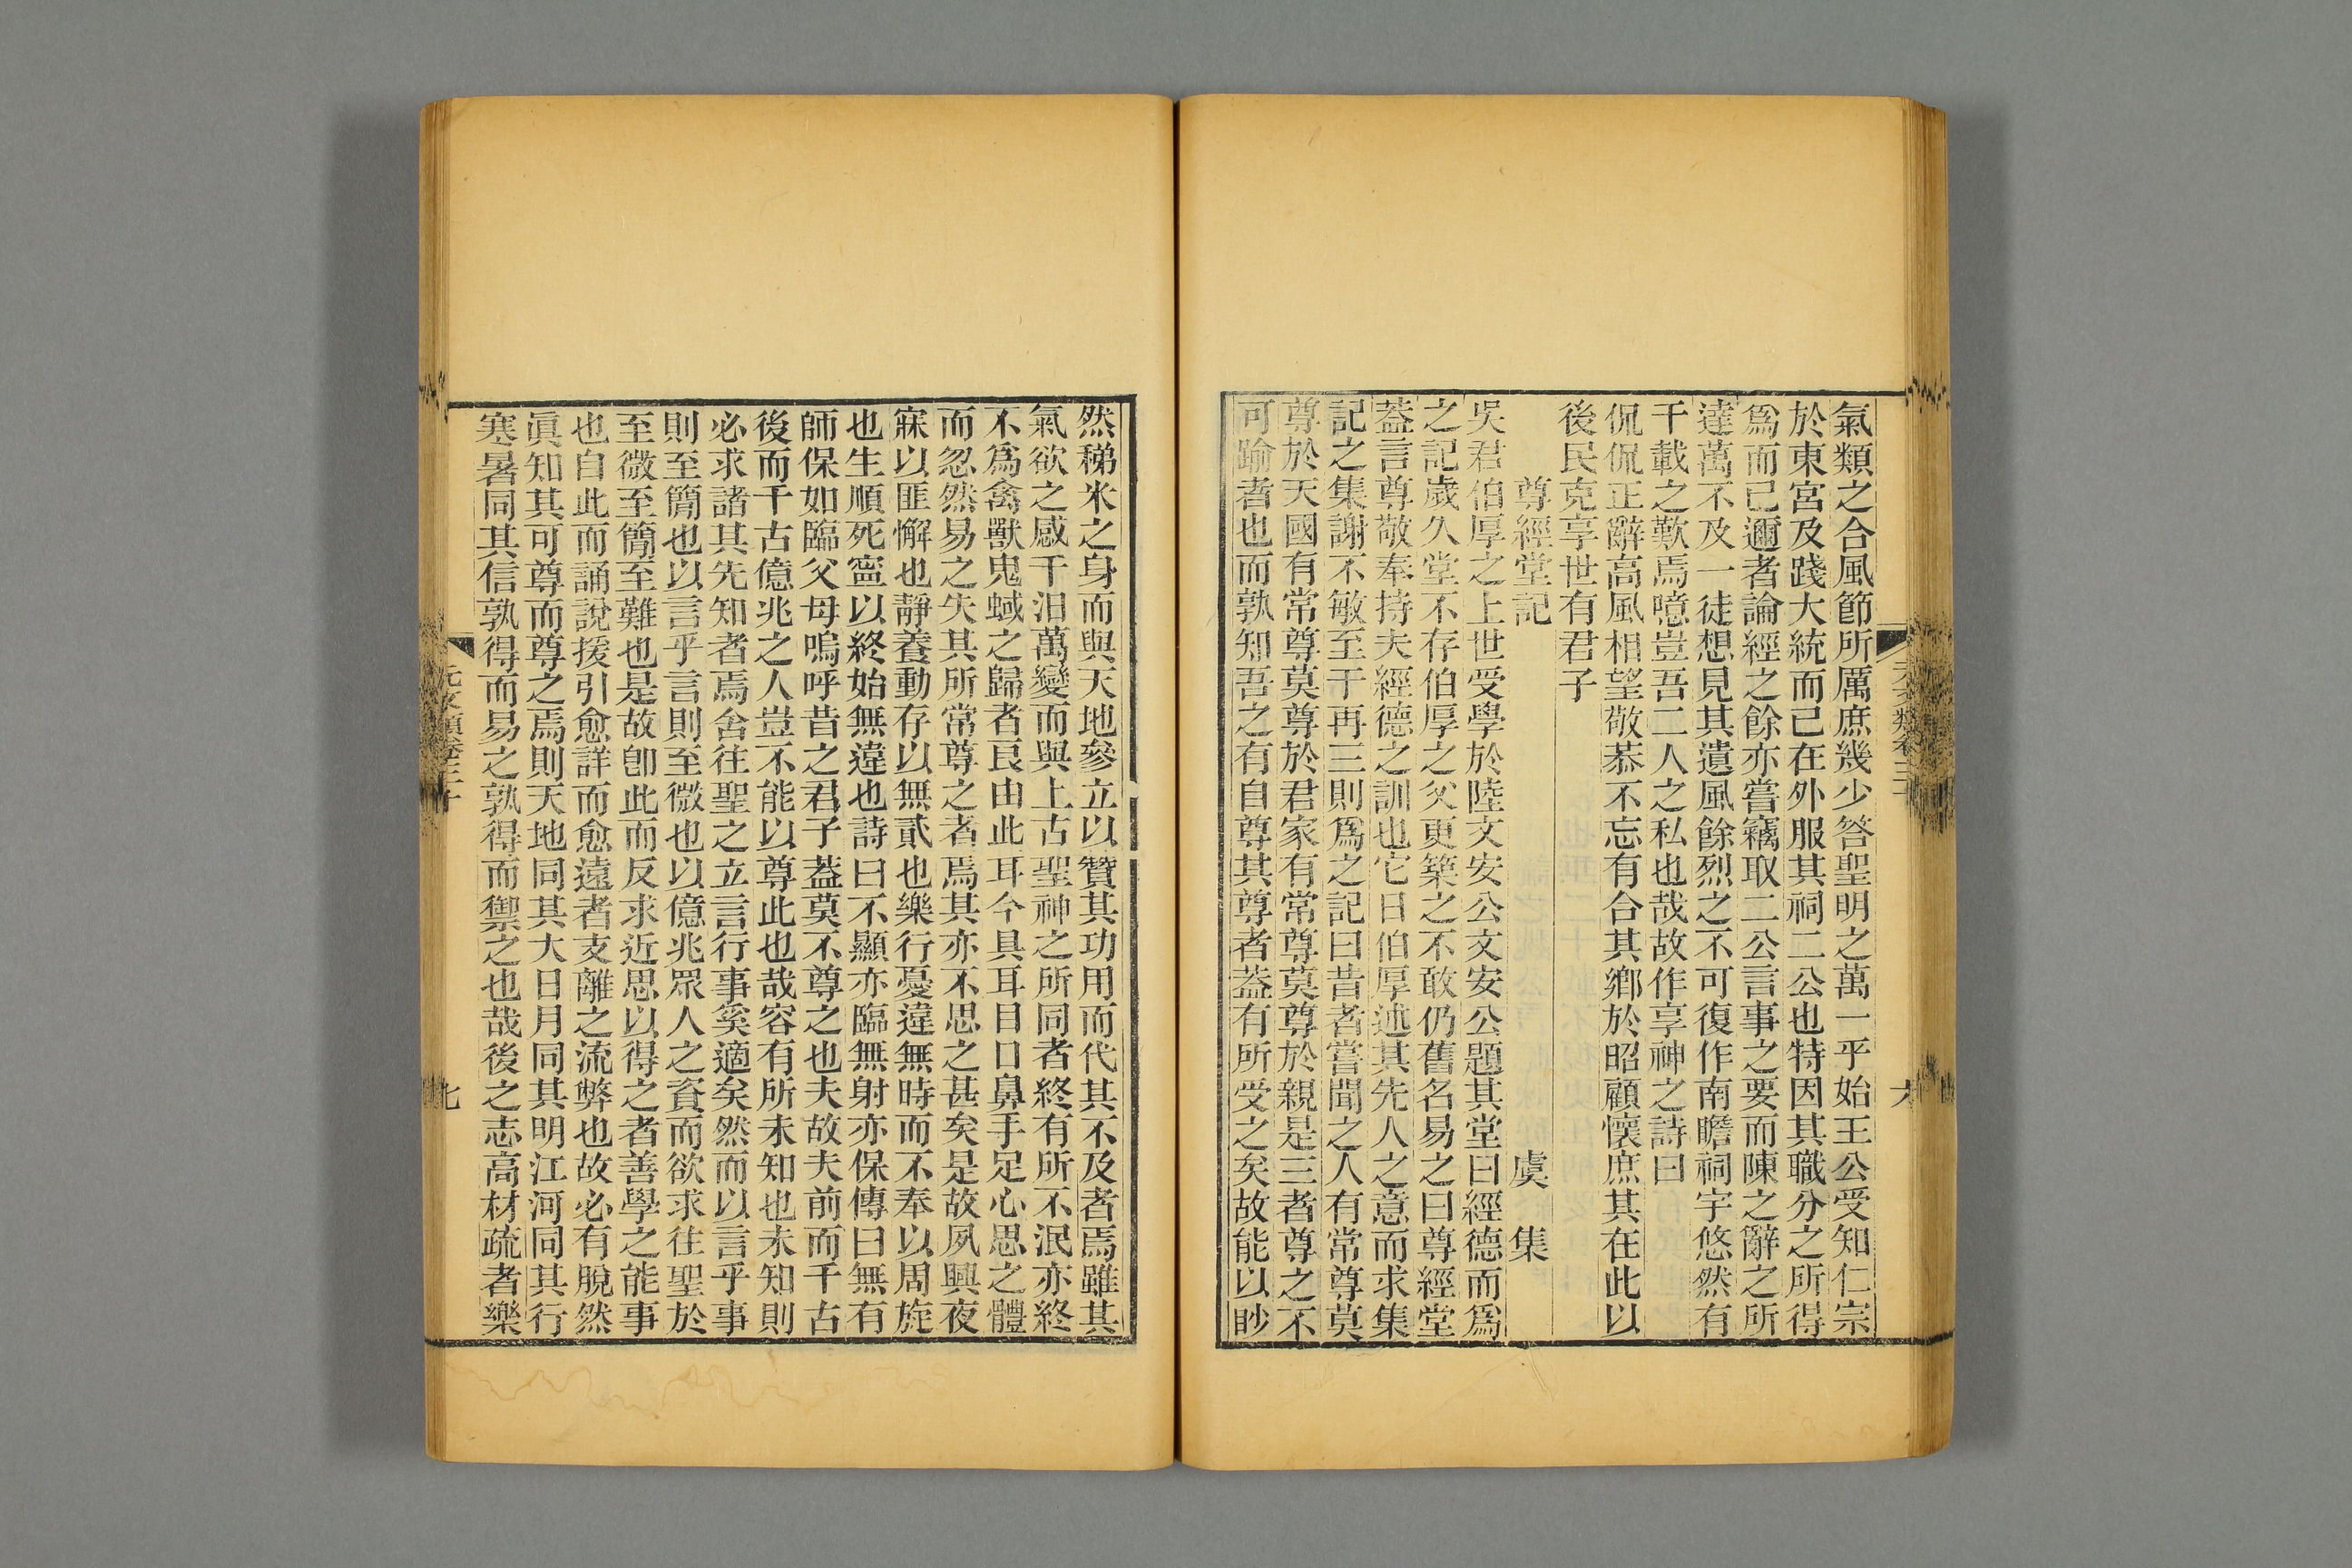 氣類之合風節所厲庶幾少答聖明之萬一乎始王公受知仁宗
於東宮及踐大統而己在外服其祠二公也特因其職分之所得
爲而己邇者論經之餘亦嘗竊取二公言事之要而陳之辭之所
達萬不及一徒想見其遺風餘烈之不可復作南瞻祠宇悠然有
千載之歎焉噫豈吾二人之私也哉故作享神之詩曰
侃侃正辭高風相望敬恭不忘有合其鄉於昭顧懷庶其在此以
後民克享世有君子
尊經堂記 虞集
吳君伯厚之上世受學於陸文安公文安公題其堂曰經德而爲
之記歲久堂不存伯厚之父更築之不敢仍舊名易之曰尊經堂
蓋言尊敬奉持夫經德之訓也它日伯厚述其先人之意而求集
記之集謝不敏至于再三則爲之記曰昔者嘗聞之人有常尊莫
尊於天國有常尊莫尊於君家有常尊莫尊於親是三者尊之不
可踰者也而孰知吾之有自尊其尊者蓋有所受之矣故能以眇
六
然稊米之身而與天地參立以贊其功用而代其不及者焉雖其
氣欲之感千汩萬變而與上古聖神之所同者終有所不泯亦終
不爲禽獸鬼蜮之歸者艮由此耳今具耳目口鼻手足心思之體
而忽然易之失其所常尊之者焉其亦不思之甚矣是故夙興夜
寐以匪懈也靜養動存以無貳也樂行憂違無時而不奉以周旋
也生順死寧以終始無違也詩曰不顯亦臨無射亦保傳曰無有
師保如臨父母嗚呼昔之君子蓋莫不尊之也夫故夫前而千古
後而千古億兆之人豈不能以尊此也哉容有所未知也未知則
必求諸其先知者焉舍往聖之立言行事奚適矣然而以言乎事
則至簡也以言乎言則至微也以億兆眾人之資而欲求往聖於
至微至簡至難也是故卽此而反求近思以得之者善學之能事
也自此而誦說援引愈詳而愈遠者支離之流弊也故必有脫然
眞知其可尊而尊之焉則天地同其大日月同其明江河同其行
寒暑同其信孰得而易之孰得而禦之也哉後之志高材疏者樂
元文類卷三十
七